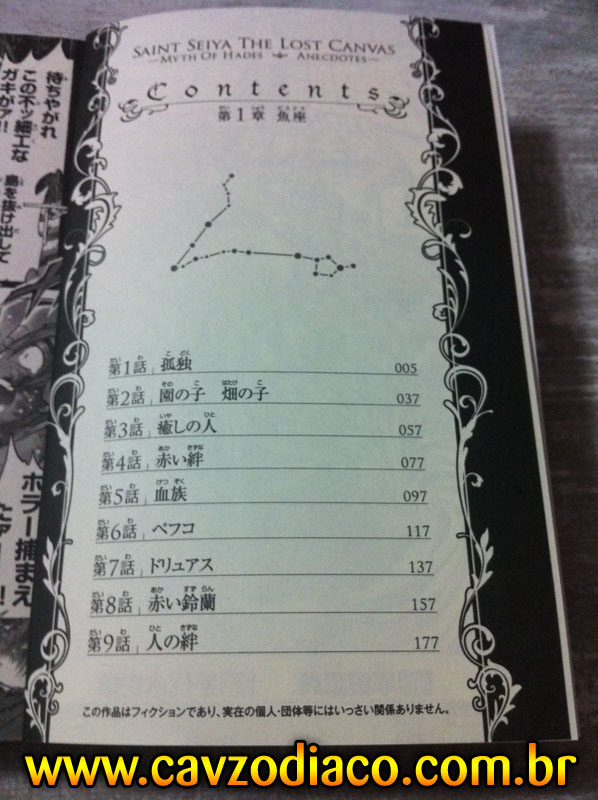 SAINT SEIYA THE LOST CANVAS
—MYTH OF HADES ANECDOTES—
Contents
第1章 魚座
第1話 孤独 005
第2話 園の子 畑の子 037
第3話 癒しの人 057
第4話 赤い絆 077
第5話 血族 097
第6話 ペフコ 117
第7話 ドリュアス 137
第8話 赤い鈴蘭 157
第9話 人の絆 177
この作品はフィクションであり、実在の個人・団体等にはいっさい関係ありません。
待ちやがれ
この不ッ細工な
ガキがァ!!
島を抜け出して
ホラー捕まえ
www.cavzodiaco.com.br